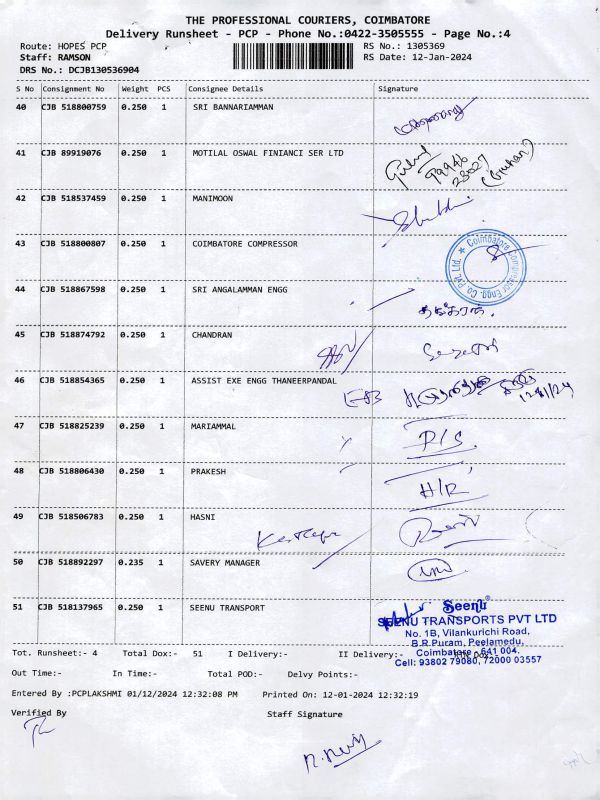 THE PROFESSIONAL COURIERS, COIMBATORE
Delivery Runsheet - PCP - Phone No.:0422-3505555 - Page No.:4
Route: HOPES PCP RS No.: 1305369
Staff: RAMSON RS Date: 12-Jan-2024
DRS No.: DCJB130536904
S No Consignment No Weight PCS Consignee Details Signature
40 CJB 518800759 0.250 1 SRI BANNARIAMMAN
41 CJB 89919076 0.250 1 MOTILAL OSWAL FINIANCI SER LTD
99946
23027
(Guhan)
42 CJB 518537459 0.250 1 MANIMOON
43 CJB 518800807 0.250 1 COIMBATORE COMPRESSOR
Coimbatore Compressor Engg. Co. Pvt. Ltd. ★
44 CJB 518867598 0.250 1 SRI ANGALAMMAN ENGG
45 CJB 518874792 0.250 1 CHANDRAN
46 CJB 518854365 0.250 1 ASSIST EXE ENGG THANEERPANDAL
EB
12/1/24
47 CJB 518825239 0.250 1 MARIAMMAL P/S.
48 CJB 518806430 0.250 1 PRAKESH H/R
49 CJB 518506783 0.250 1 HASNI
50 CJB 518892297 0.235 1 SAVERY MANAGER
51 CJB 518137965 0.250 1 SEENU TRANSPORT
Seenu®
SEENU TRANSPORTS PVT LTD
No. 1B, Vilankurichi Road,
B.R.Puram, Peelamedu,
Coimbatore - 641 004.
Cell: 93802 79080, 72000 03557
Tot. Runsheet:- 4 Total Dox:- 51 I Delivery:- II Delivery:-
Out Time:- In Time:- Total POD:- Delvy Points:-
Entered By :PCPLAKSHMI 01/12/2024 12:32:08 PM Printed On: 12-01-2024 12:32:19
Verified By Staff Signature